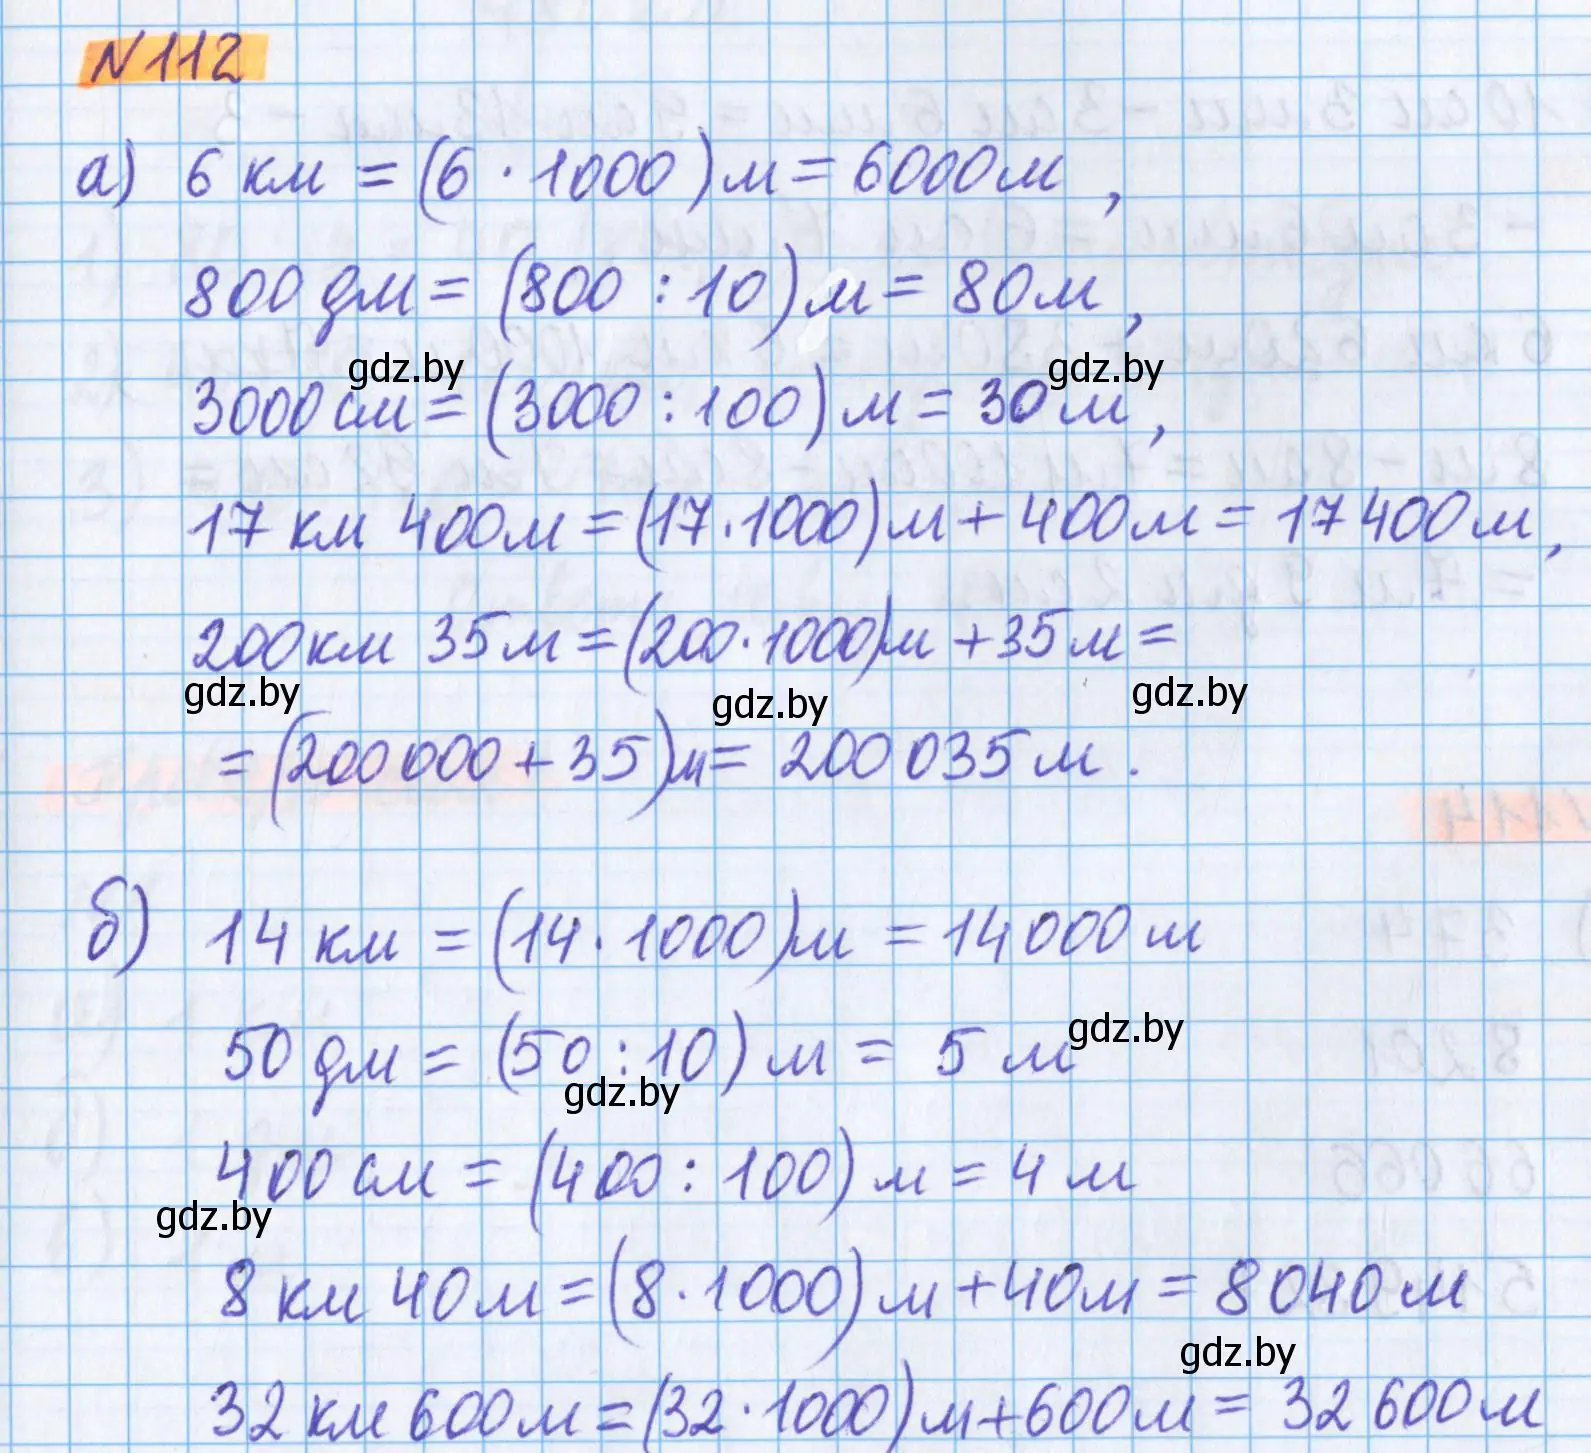 N 112
а) 6 км = (6 · 1000) м = 6000 м ,
800 дм = (800 : 10) м = 80 м ,
gdz.by gdz.by
3000 см = (3000 : 100) м = 30 м ,
17 км 400 м = (17 · 1000) м + 400 м = 17 400 м ,
200 км 35 м = (200 · 1000) м + 35 м =
gdz.by gdz.by gdz.by
= (200 000 + 35) м = 200 035 м .
б) 14 км = (14 · 1000) м = 14 000 м
gdz.by
50 дм = (50 : 10) м = 5 м
gdz.by
400 см = (400 : 100) м = 4 м
gdz.by
8 км 40 м = (8 · 1000) м + 40 м = 8 040 м
gdz.by
32 км 600 м = (32 · 1000) м + 600 м = 32 600 м